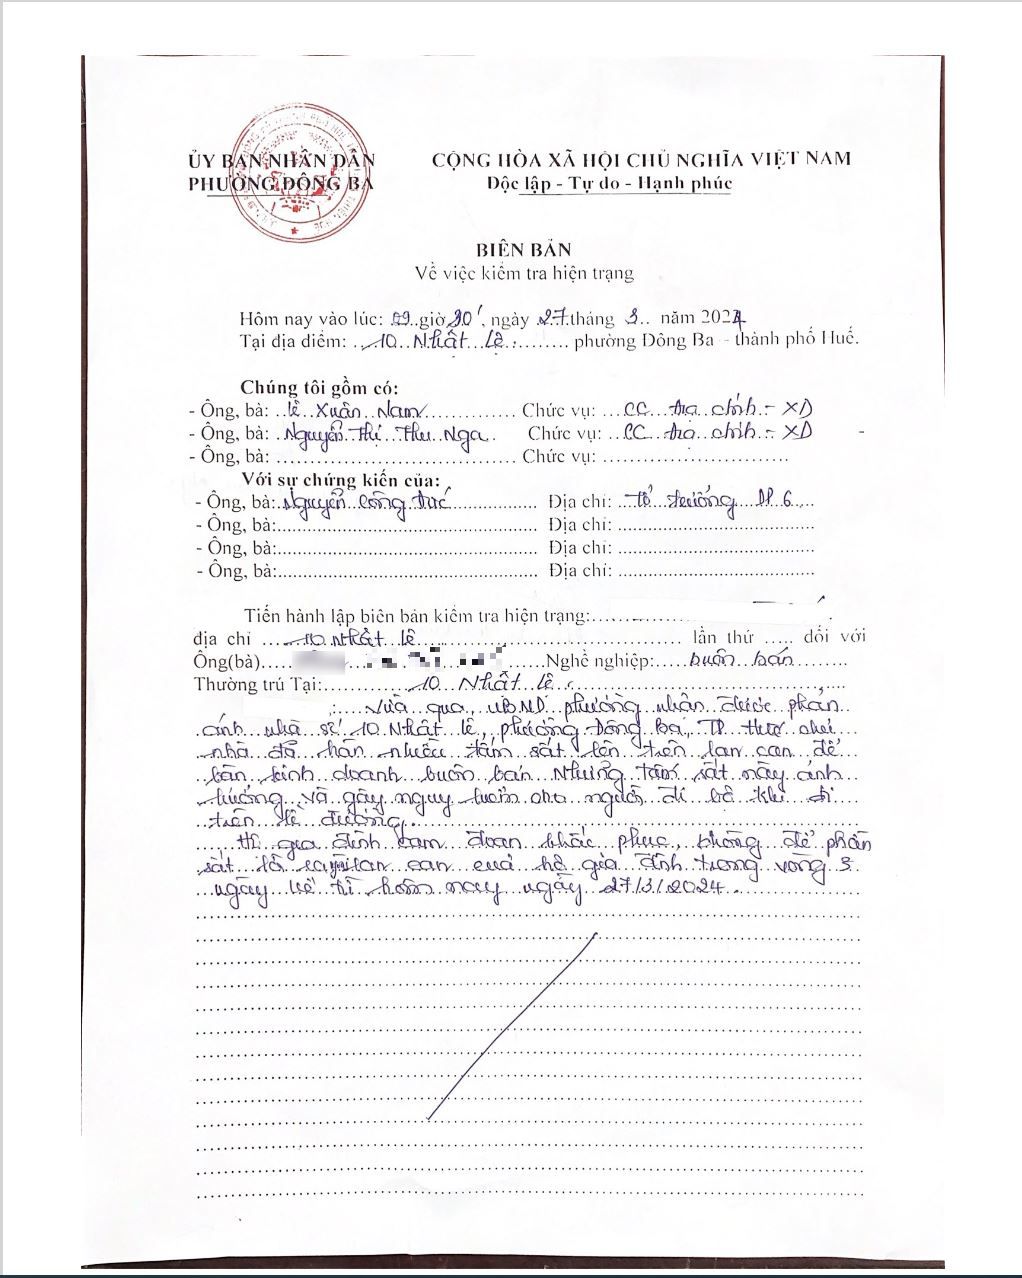 ỦY BAN NHÂN DÂN
PHƯỜNG ĐÔNG BA
CỘNG HÒA XÃ HỘI CHỦ NGHĨA VIỆT NAM
Độc lập - Tự do - Hạnh phúc
BIÊN BẢN
Về việc kiểm tra hiện trạng
Hôm nay vào lúc: 09 giờ 20', ngày 27 tháng 3 năm 2024
Tại địa điểm: 10 Nhật Lệ phường Đông Ba - thành phố Huế.
Chúng tôi gồm có:
- Ông, bà: Lê Xuân Nam Chức vụ: CC địa chính - XD
- Ông, bà: Nguyễn Thị Thu Nga Chức vụ: CC địa chính - XD
- Ông, bà: Chức vụ:
Với sự chứng kiến của:
- Ông, bà: Nguyễn Công Đức Địa chỉ: Tổ trưởng DP 6
- Ông, bà: Địa chỉ:
- Ông, bà: Địa chỉ:
- Ông, bà: Địa chỉ:
Tiến hành lập biên bản kiểm tra hiện trạng:
địa chỉ 10 Nhật Lệ lần thứ ..... đối với
Ông(bà) Nghề nghiệp: buôn bán
Thường trú Tại: 10 Nhật Lệ
Vừa qua, UBND phường nhận được phản
ánh nhà số 10 Nhật Lệ, phường Đông Ba, TP Huế chủ
nhà đã hàn nhiều tấm sắt lên trên lan can để
bán kinh doanh buôn bán Những tấm sắt này ảnh
hưởng và gây nguy hiểm cho người đi bộ khi đi
trên lề đường.
gia đình cam đoan khắc phục, không để phần
sắt lan can của hộ gia đình trong vòng 3
ngày kể từ hôm nay ngày 27/3/2024.